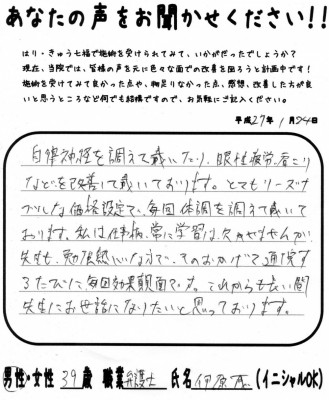 あなたの声をお聞かせください!!
はり・きゅう七福で施術を受けられてみて、いかがだったでしょうか?
現在、当院では、皆様の声を元に色々な面での改善を図ろうと計画中です!
施術を受けてみて良かった点や、物足りなかった点、感想、改善した方が良
いと思うところなど何でも結構ですので、お気軽にご記入ください。
平成27年1月24日
自律神経を調えて戴いたり、眼性疲労、肩こり
などを改善して戴いております。とてもリーズナ
ブルな価格設定で、毎回体調を調えて戴いて
おります。私は仕事柄、常に学習は欠かせませんが
先生も、勉強熱心な方で、そのおかげで通院す
るたびに、毎回効果覿面です。これからも長い間
先生にお世話になりたいと思っております。
男性・女性 39歳 職業 弁護士 氏名 (イニシャルOK)